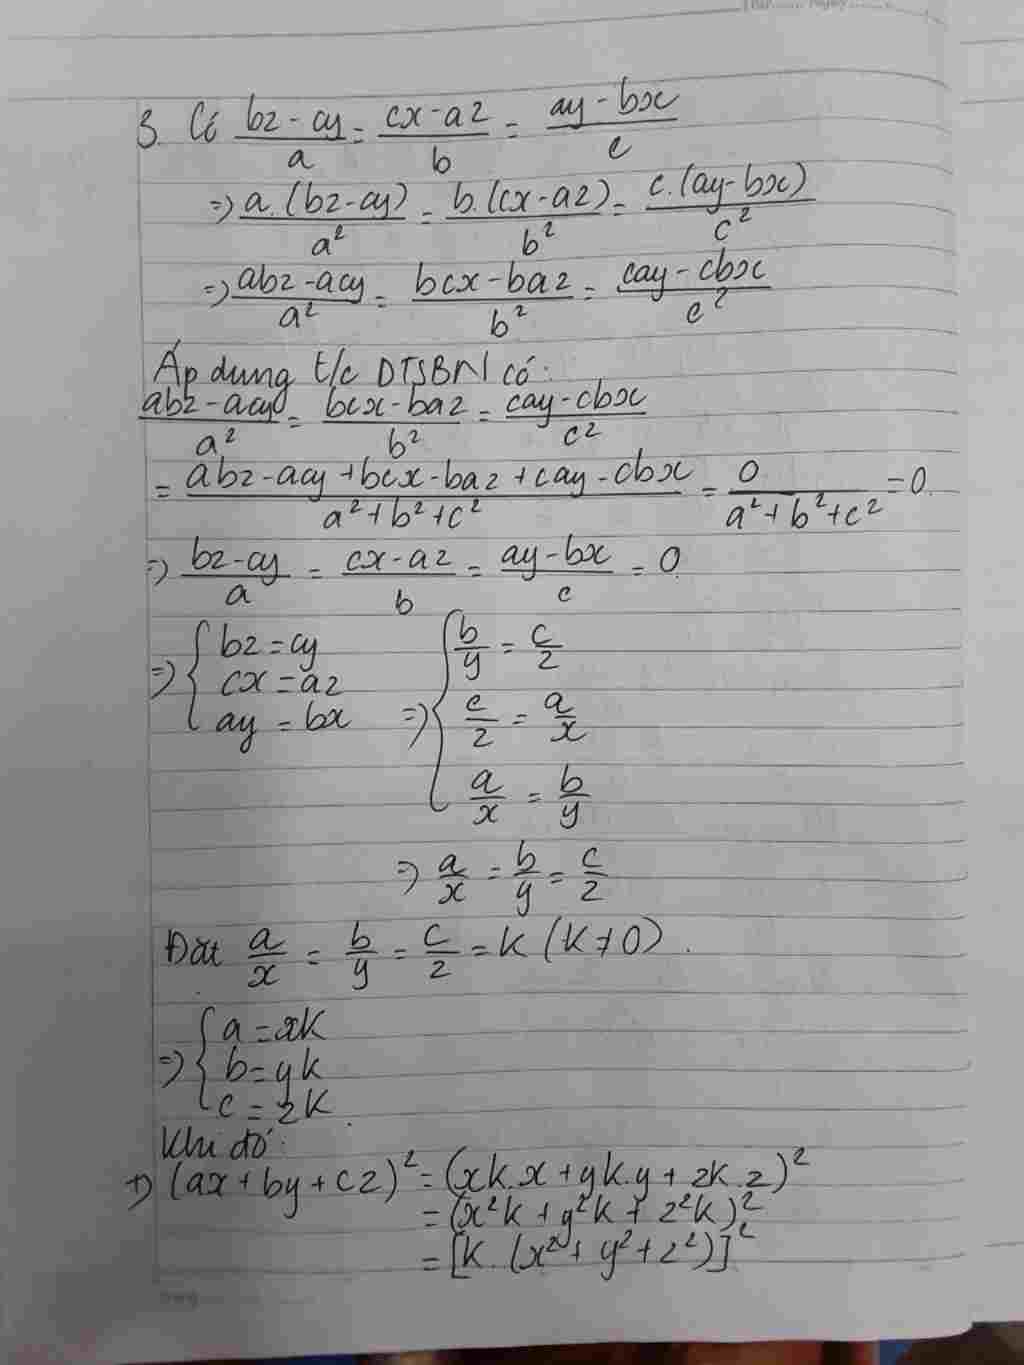 3. Có \frac{bz-cy}{a} = \frac{cx-az}{b} = \frac{ay-bx}{c}
=> \frac{a.(bz-cy)}{a^2} = \frac{b.(cx-az)}{b^2} = \frac{c.(ay-bx)}{c^2}
=> \frac{abz-acy}{a^2} = \frac{bcx-baz}{b^2} = \frac{cay-cbx}{c^2}
Áp dụng t/c DTSBN có:
\frac{abz-acy}{a^2} = \frac{bcx-baz}{b^2} = \frac{cay-cbx}{c^2}
= \frac{abz-acy+bcx-baz+cay-cbx}{a^2+b^2+c^2} = \frac{0}{a^2+b^2+c^2} = 0
=> \frac{bz-cy}{a} = \frac{cx-az}{b} = \frac{ay-bx}{c} = 0
=> { bz=cy
cx=az
ay=bx
=> { \frac{b}{y} = \frac{c}{z}
\frac{c}{z} = \frac{a}{x}
\frac{a}{x} = \frac{b}{y}
=> \frac{a}{x} = \frac{b}{y} = \frac{c}{z}
Đặt \frac{a}{x} = \frac{b}{y} = \frac{c}{z} = k (k≠0).
=> { a=xk
b=yk
c=zk.
Khi đó:
+) (ax+by+cz)^2 = (xk.x+yk.y+zk.z)^2
= (x^2k+y^2k+z^2k)^2
= [k.(x^2+y^2+z^2)]^2